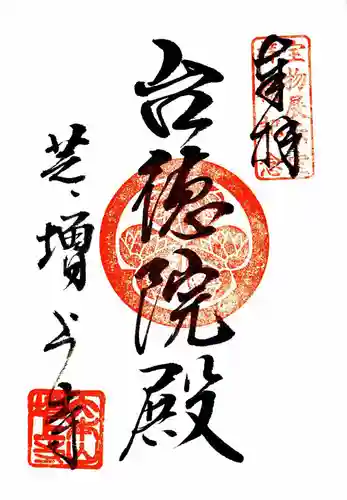 奉拝
宝物展
台徳院殿
芝、増上寺